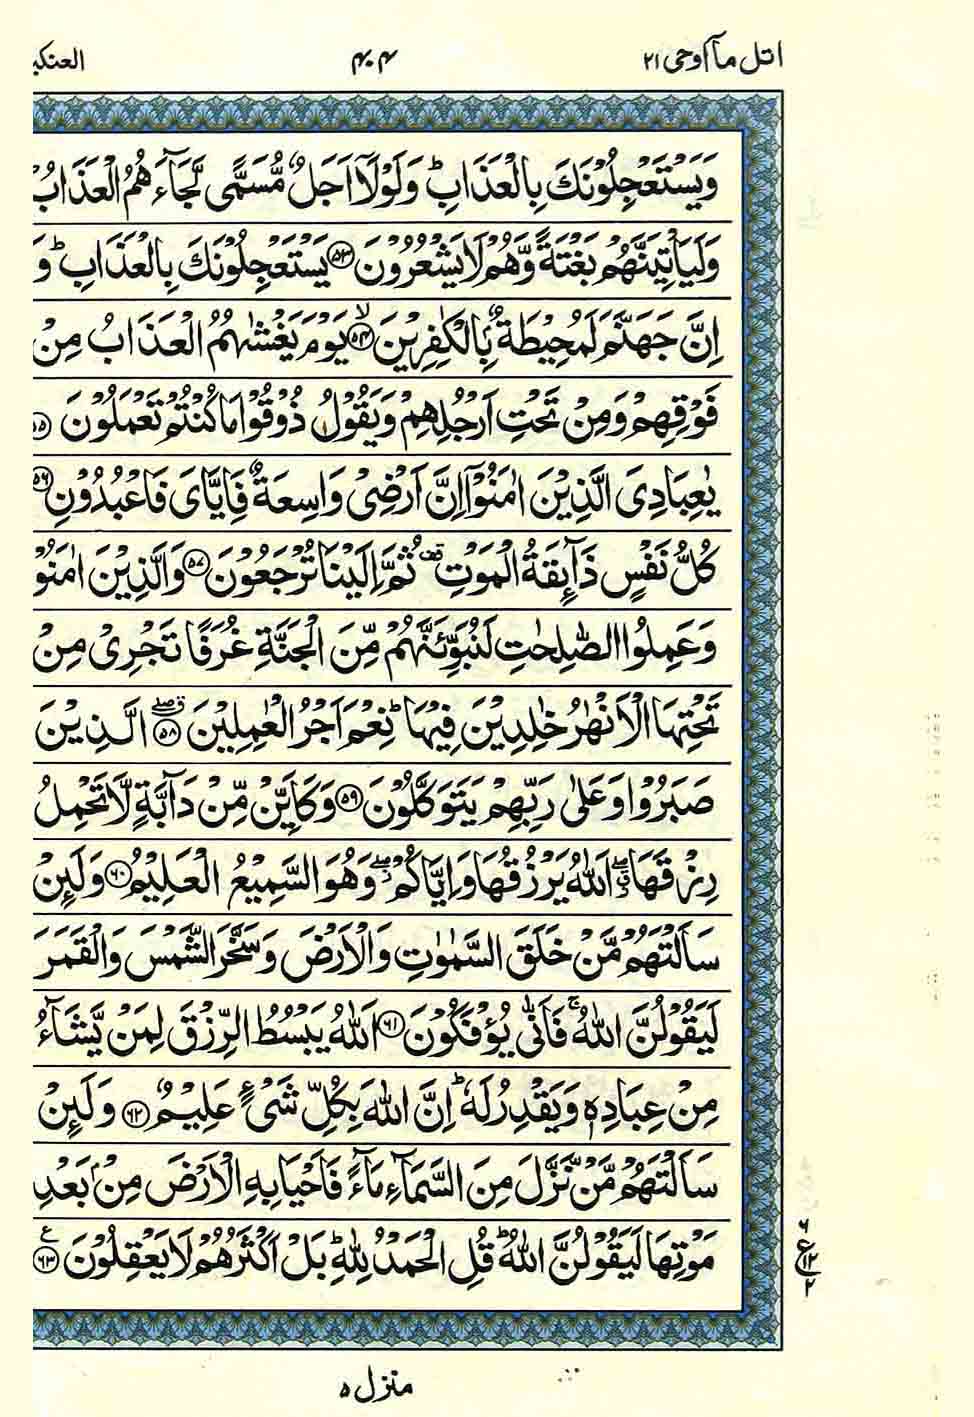 اتل مآ اوحی ۲۱
۴۰۴
العنکب
وَيَسْتَعْجِلُوْنَكَ بِالْعَذَابِ ؕ وَلَوْلَاۤ اَجَلٌ مُّسَمًّى لَّجَآءَهُمُ الْعَذَابُ
وَلَيَاْتِيَنَّهُمْ بَغْتَةً وَّهُمْ لَا يَشْعُرُوْنَ ۝۵۳ يَسْتَعْجِلُوْنَكَ بِالْعَذَابِ ؕ وَ
اِنَّ جَهَنَّمَ لَمُحِيْطَةٌۢ بِالْكٰفِرِيْنَ ۙ۝۵۴ يَوْمَ يَغْشٰىهُمُ الْعَذَابُ مِنْ
فَوْقِهِمْ وَمِنْ تَحْتِ اَرْجُلِهِمْ وَيَقُوْلُ ذُوْقُوْا مَا كُنْتُمْ تَعْمَلُوْنَ ۝۵۵
يٰعِبَادِيَ الَّذِيْنَ اٰمَنُوْۤا اِنَّ اَرْضِيْ وَاسِعَةٌ فَاِيَّايَ فَاعْبُدُوْنِ ۝۵۶
كُلُّ نَفْسٍ ذَآئِقَةُ الْمَوْتِ ۫ ثُمَّ اِلَيْنَا تُرْجَعُوْنَ ۝۵۷ وَالَّذِيْنَ اٰمَنُوْ
وَعَمِلُوا الصّٰلِحٰتِ لَنُبَوِّئَنَّهُمْ مِّنَ الْجَنَّةِ غُرَفًا تَجْرِيْ مِنْ
تَحْتِهَا الْاَنْهٰرُ خٰلِدِيْنَ فِيْهَا ؕ نِعْمَ اَجْرُ الْعٰمِلِيْنَ ۝۵۸ الَّذِيْنَ
صَبَرُوْا وَعَلٰى رَبِّهِمْ يَتَوَكَّلُوْنَ ۝۵۹ وَكَاَيِّنْ مِّنْ دَآبَّةٍ لَّا تَحْمِلُ
رِزْقَهَا ۖ اَللّٰهُ يَرْزُقُهَا وَاِيَّاكُمْ ۖ وَهُوَ السَّمِيْعُ الْعَلِيْمُ ۝۶۰ وَلَئِنْ
سَاَلْتَهُمْ مَّنْ خَلَقَ السَّمٰوٰتِ وَالْاَرْضَ وَسَخَّرَ الشَّمْسَ وَالْقَمَرَ
لَيَقُوْلُنَّ اللّٰهُ ۚ فَاَنّٰى يُؤْفَكُوْنَ ۝۶۱ اَللّٰهُ يَبْسُطُ الرِّزْقَ لِمَنْ يَّشَآءُ
مِنْ عِبَادِهٖ وَيَقْدِرُ لَهٗ ؕ اِنَّ اللّٰهَ بِكُلِّ شَيْءٍ عَلِيْمٌ ۝۶۲ وَلَئِنْ
سَاَلْتَهُمْ مَّنْ نَّزَّلَ مِنَ السَّمَآءِ مَآءً فَاَحْيَا بِهِ الْاَرْضَ مِنْۢ بَعْدِ
مَوْتِهَا لَيَقُوْلُنَّ اللّٰهُ ؕ قُلِ الْحَمْدُ لِلّٰهِ ؕ بَلْ اَكْثَرُهُمْ لَا يَعْقِلُوْنَ ۝۶۳ ع
۶
ع ۱۲
۲
منزل ۵